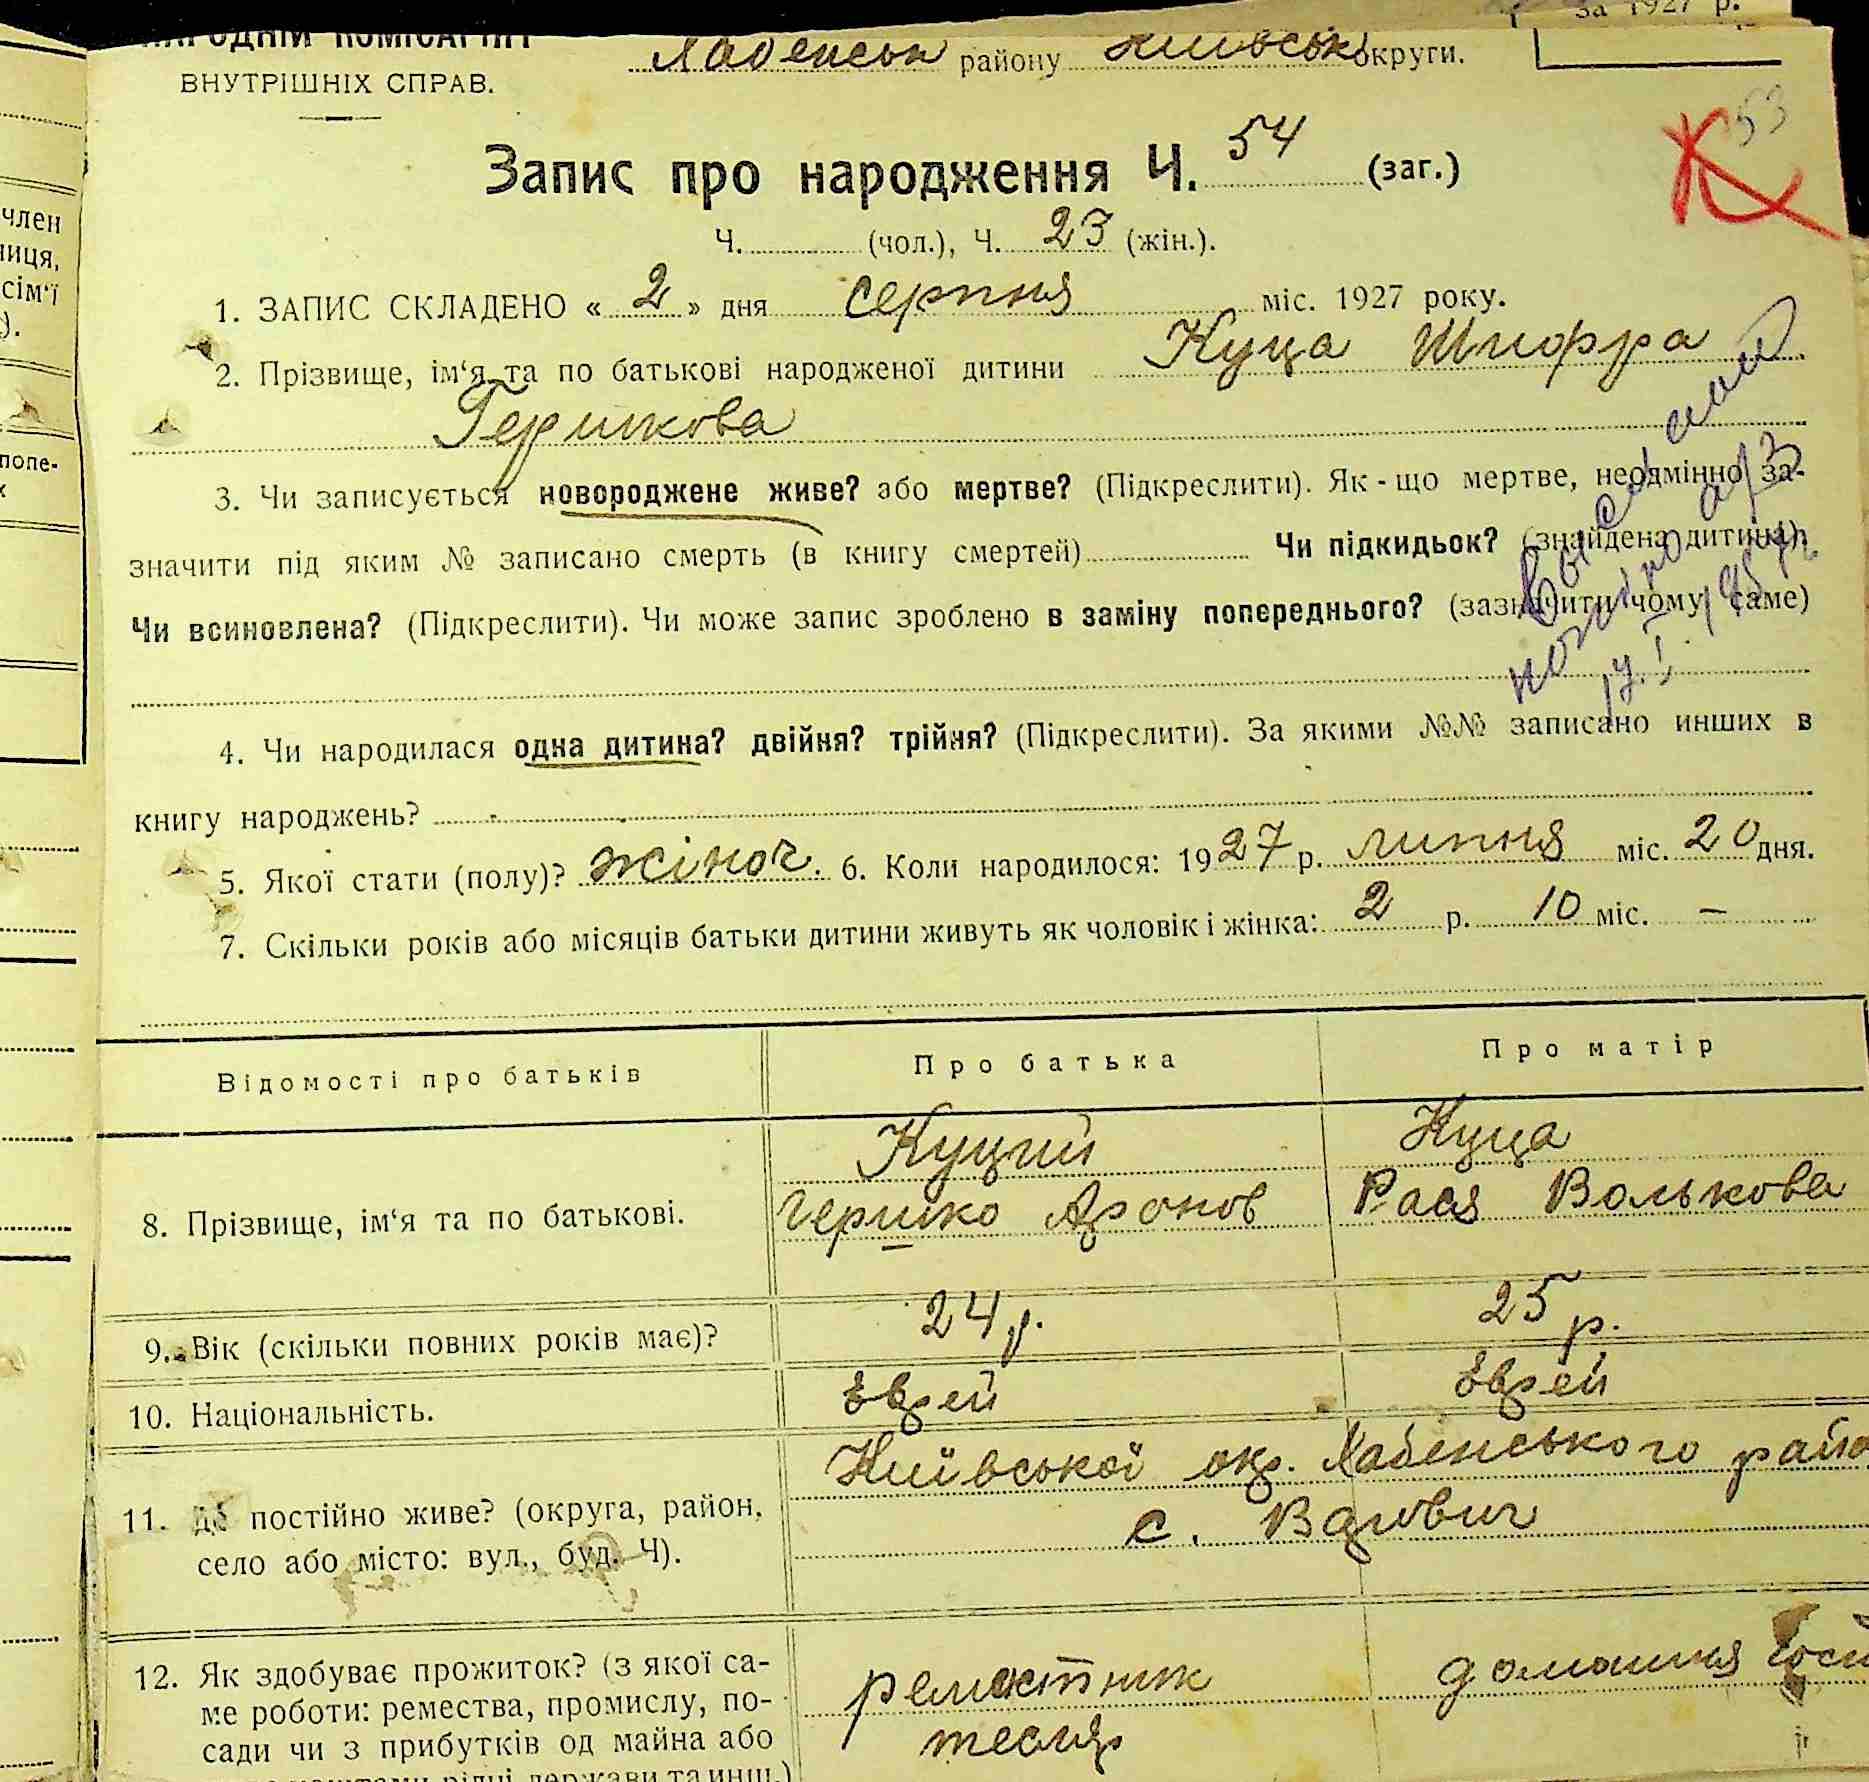 за 1927 р.
НАРОДНІЙ КОМІСАРІЯТ
ВНУТРІШНІХ СПРАВ.
Хабенськ району Київськ округи.
53
Запис про народження Ч. 54 (заг.)
Ч. (чол.), Ч. 23 (жін.).
1. ЗАПИС СКЛАДЕНО « 2 » дня серпня міс. 1927 року.
2. Прізвище, ім‘я та по батькові народженої дитини Куца Шифра
Гершкова
3. Чи записується новороджене живе? або мертве? (Підкреслити). Як-що мертве, неодмінно за-
значити під яким № записано смерть (в книгу смертей) Чи підкидьок? (знайдена дитина).
Чи всиновлена? (Підкреслити). Чи може запис зроблено в заміну попереднього? (зазначити чому саме)
4. Чи народилася одна дитина? двійня? трійня? (Підкреслити). За якими №№ записано инших в
книгу народжень?
5. Якої стати (полу)? жіноч. 6. Коли народилося: 1927 р. липня міс. 20 дня.
7. Скільки років або місяців батьки дитини живуть як чоловік і жінка: 2 р. 10 міс. —
Відомості про батьків Про батька Про матір
Куций Куца
8. Прізвище, ім‘я та по батькові. Гершко Аронов Рася Волькова
9. Вік (скільки повних років має)? 24 р. 25 р.
10. Національність. Єврей Єврей
Київської окр. Хабенського райо
11. Де постійно живе? (округа, район,
с. Вдович
село або місто: вул., буд. Ч).
12. Як здобуває прожиток? (з якої са-
реместник домашня госп
ме роботи: ремества, промислу, по-
сади чи з прибутків од майна або
тесляр
член
ниця,
сім‘ї
).
попе-